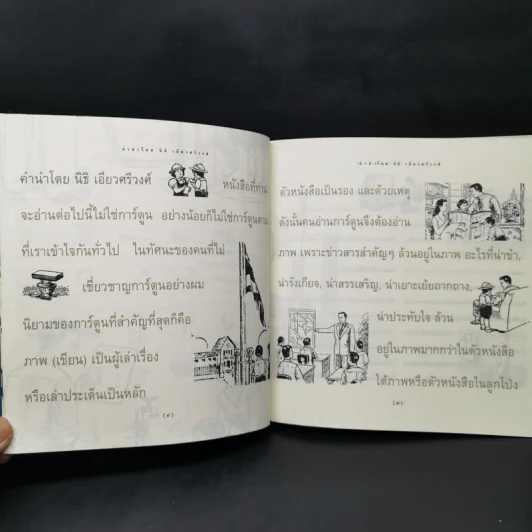 คำนำโดย นิธิ เอียวศรีวงศ์
คำนำโดย นิธิ เอียวศรีวงศ์
หนังสือที่ท่าน
จะอ่านต่อไปนี้ไม่ใช่การ์ตูน อย่างน้อยก็ไม่ใช่การ์ตูนตาม
ที่เราเข้าใจกันทั่วไป ในทัศนะของคนที่ไม่
เชี่ยวชาญการ์ตูนอย่างผม
นิยามของการ์ตูนที่สำคัญที่สุดก็คือ
ภาพ (เขียน) เป็นผู้เล่าเรื่อง
หรือเล่าประเด็นเป็นหลัก
[๘]
คำนำโดย นิธิ เอียวศรีวงศ์
ตัวหนังสือเป็นรอง และด้วยเหตุ
ดังนั้นคนอ่านการ์ตูนจึงต้องอ่าน
ภาพ เพราะข่าวสารสำคัญๆ ล้วนอยู่ในภาพ อะไรที่น่าขำ,
น่ารังเกียจ, น่าสรรเสริญ, น่าเยาะเย้ยถากถาง,
น่าประทับใจ ล้วน
อยู่ในภาพมากกว่าในตัวหนังสือ
ใต้ภาพหรือตัวหนังสือในลูกโป่ง
[๙]